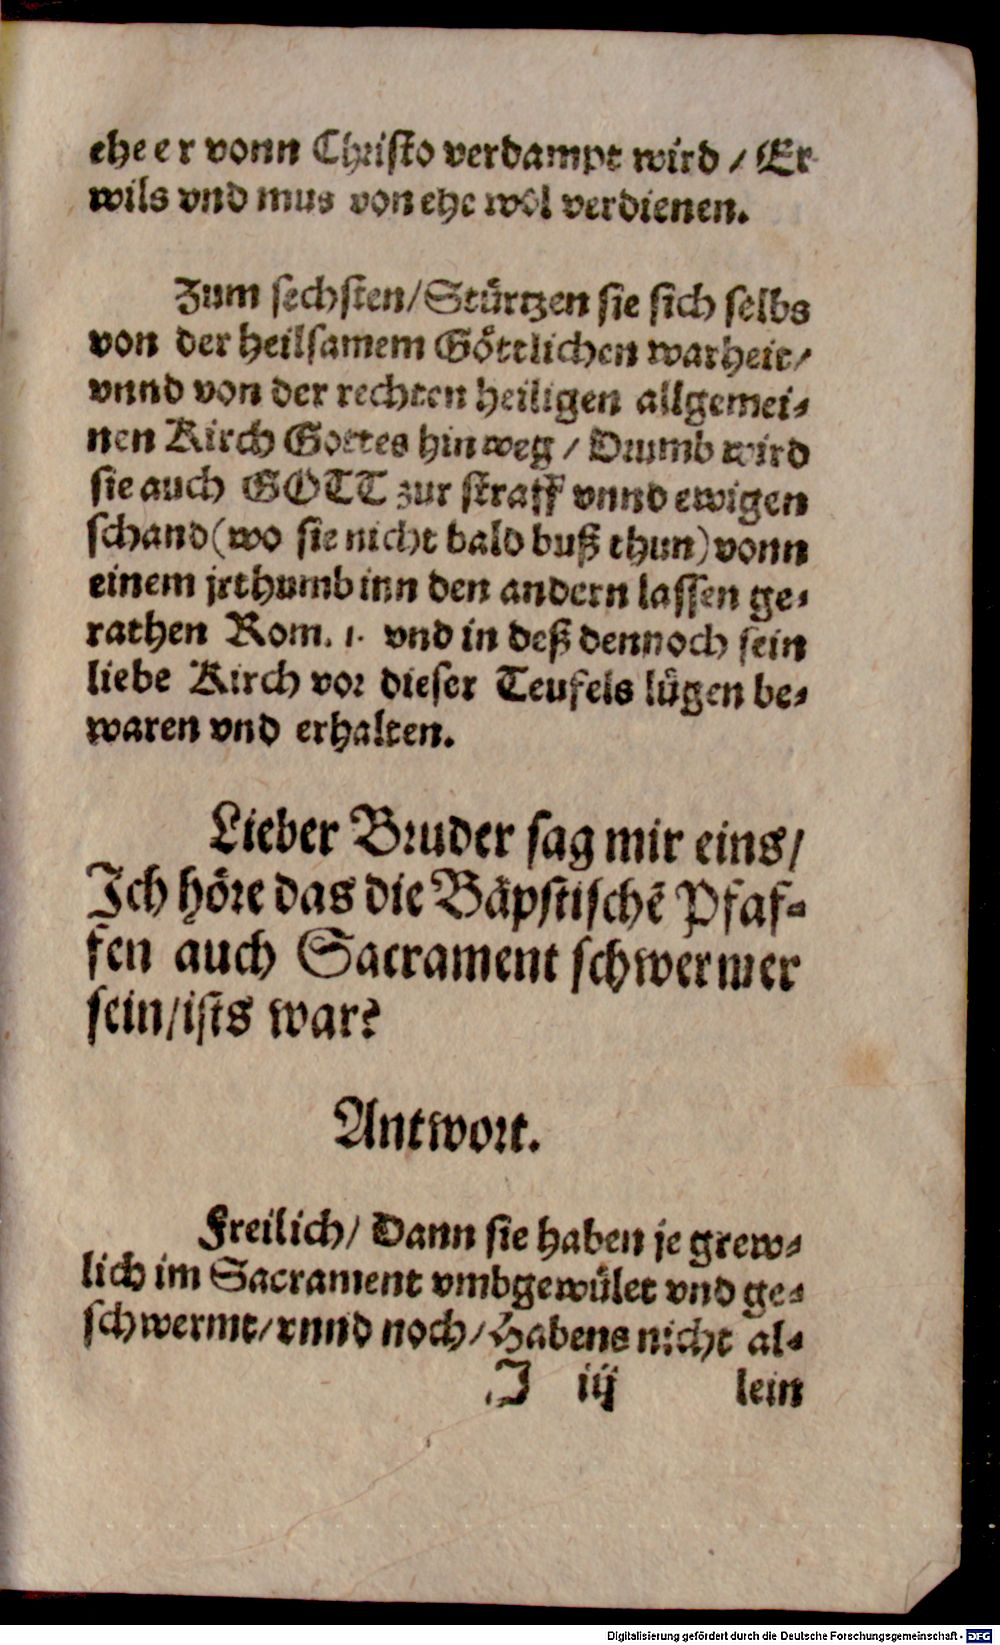 ehe er vonn Christo verdampt wird / Er
wils vnd mus von ehe wol verdienen.
Zum sechsten/Stürtzen sie sich selbs
von der heilsamem Göttlichen warheit/
vnnd von der rechten heiligen allgemei-
nen Kirch Gottes hin weg / Drumb wird
sie auch GOTT zur straff vnnd ewigen
schand(wo sie nicht bald buß thun)vonn
einem jrthumb inn den andern lassen ge-
rathen Rom. 1. vnd in deß dennoch sein
liebe Kirch vor dieser Teufels lügen be-
waren vnd erhalten.
Lieber Bruder sag mir eins/
Ich höre das die Bäpstischē Pfaf-
fen auch Sacrament schwermer
sein/ists war?
Antwort.
Freilich/ Dann sie haben je grew-
lich im Sacrament vmbgewület vnd ge-
schwermt/vnnd noch/Habens nicht al-
J iij lein
Digitalisierung gefördert durch die Deutsche Forschungsgemeinschaft - DFG